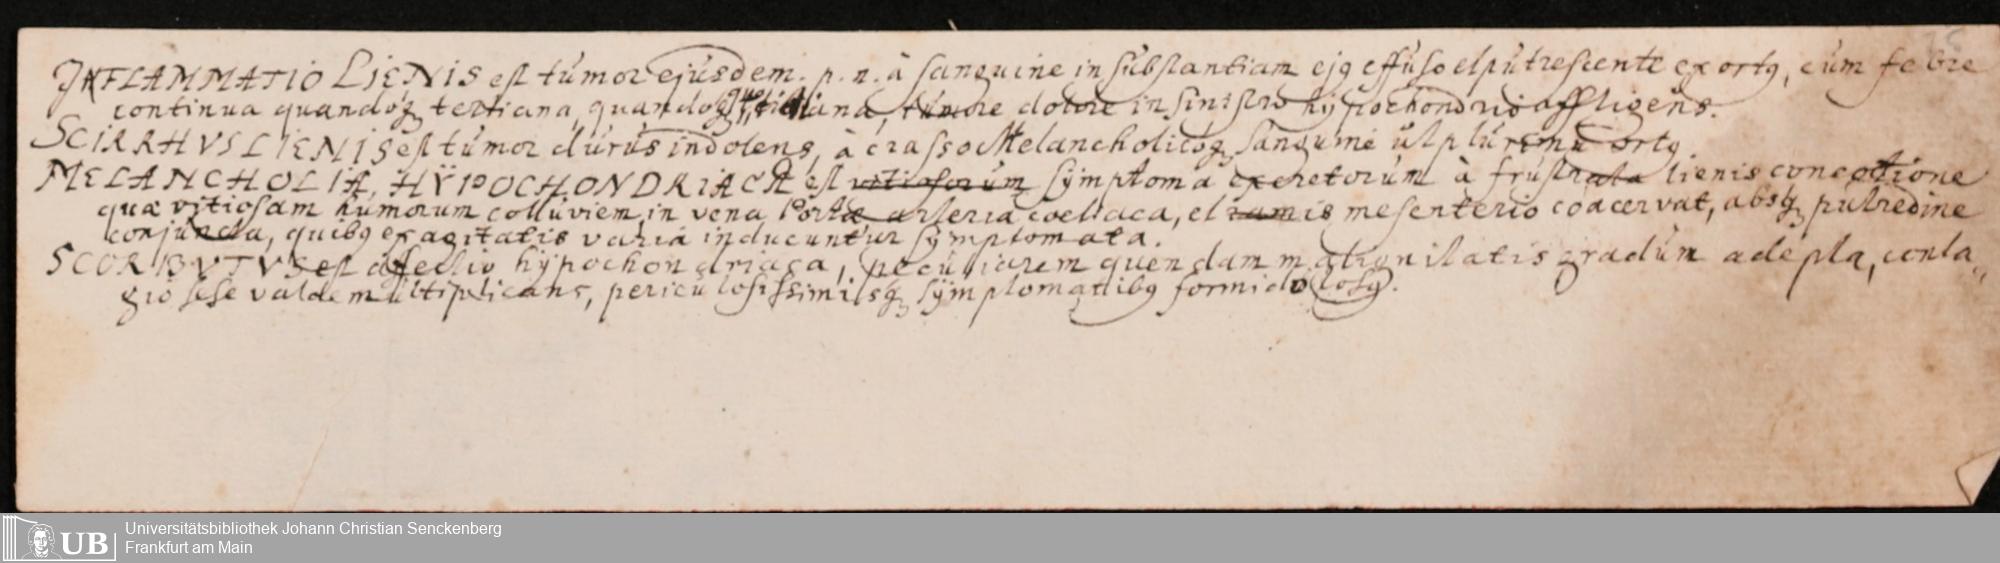 INFLAMMATIO LIENIS est tumor ejusdem. p. n. à sanguine in substantiam ejꝯ effuso et putrescente exortꝯ, cum febre
continua quandoqꝫ tertiana, quandoqꝫ quotidiana, dolore in sinistro hypochondrio affligens.
SCIRRHVS LIENIS est tumor durus indolens, à crasso Melancholicoqꝫ sanguine ut plurimu ortꝯ
MELANCHOLIA HŸPOCHONDRIACA est vitiosorum sÿmptoma excretorum à frustrata lienis concoctione
quæ vitiosam humorum colluviem in vena Portæ arteria coeliaca, et ramis mesenterio coacervat, absqꝫ putredine
conjuncta, quibꝯ exagitatis varia inducuntur sÿmptomata.
SCORBVTVS est affectio hÿpochondriaca, peculiarem quendam malignitatis gradum adepta, conta„
gio sese valde multiplicans, periculosissimisqꝫ sÿmptomatibꝯ formidolosꝯ.
UB
Universitätsbibliothek Johann Christian Senckenberg
Frankfurt am Main